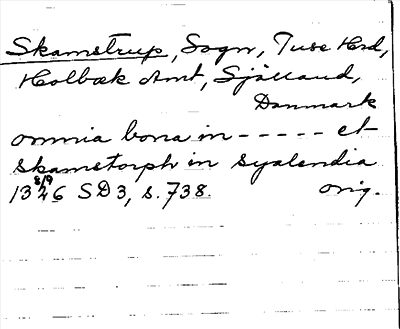 Skamstrup, Sogn, Tuse Hrd,
Holbæk Amt, Sjælland,
Danmark
omnia bona in - - - - - et
Skamstorph in Syalendia
8/9
1346 SD3, s. 738. orig.